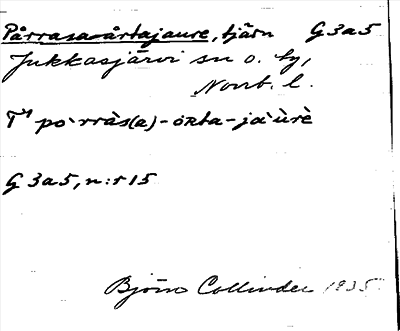 Pårrasa-årtajaure, tjärn G 3 a 5
Jukkasjärvi sn o. ty,
Norrb. l.
po`rràs(a)-òʀta-jàu`rè
G 3a5, n:r 15
Björn Collinder 1935